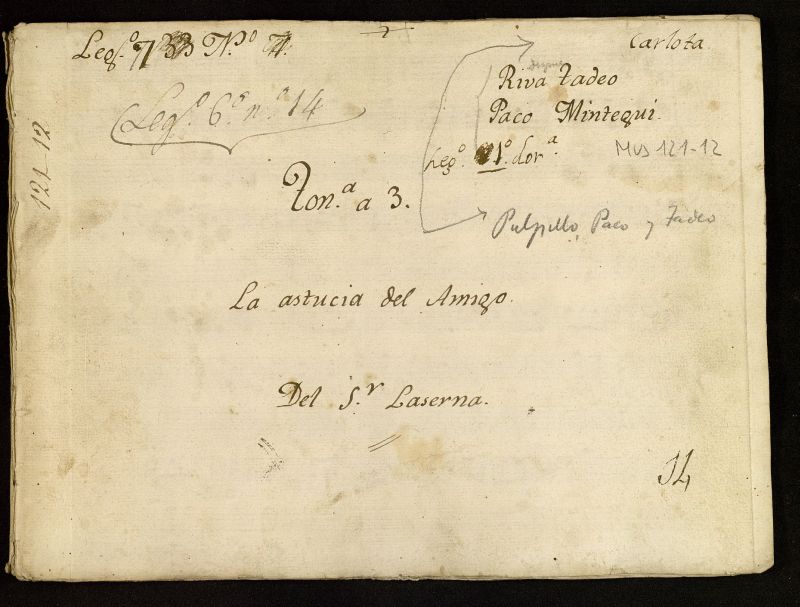 Carlota
Leg.º 7
Riva Tadeo
Leg.º 6º n.º 14
Paco Mintegui.
Leg.º 1º. dorª.
Mus 121-12
121-12
Ton.ª a 3.
Pulpillo, Paco y Tadeo
La astucia del Amigo.
Del S.r Laserna.
14